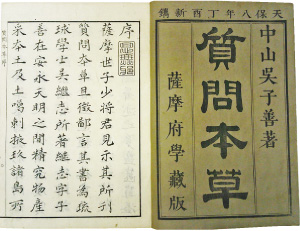 天保八年丁酉新鐫
中山吳子善著
質問本草
薩摩府學藏版
序
薩摩世子少將君見示其所刊
質問本草且徵鄙言其書為琉
球學士吳繼志所著繼志字子
善在安永天明之間精究物產
采本土及土噶剌掖玖諸島所